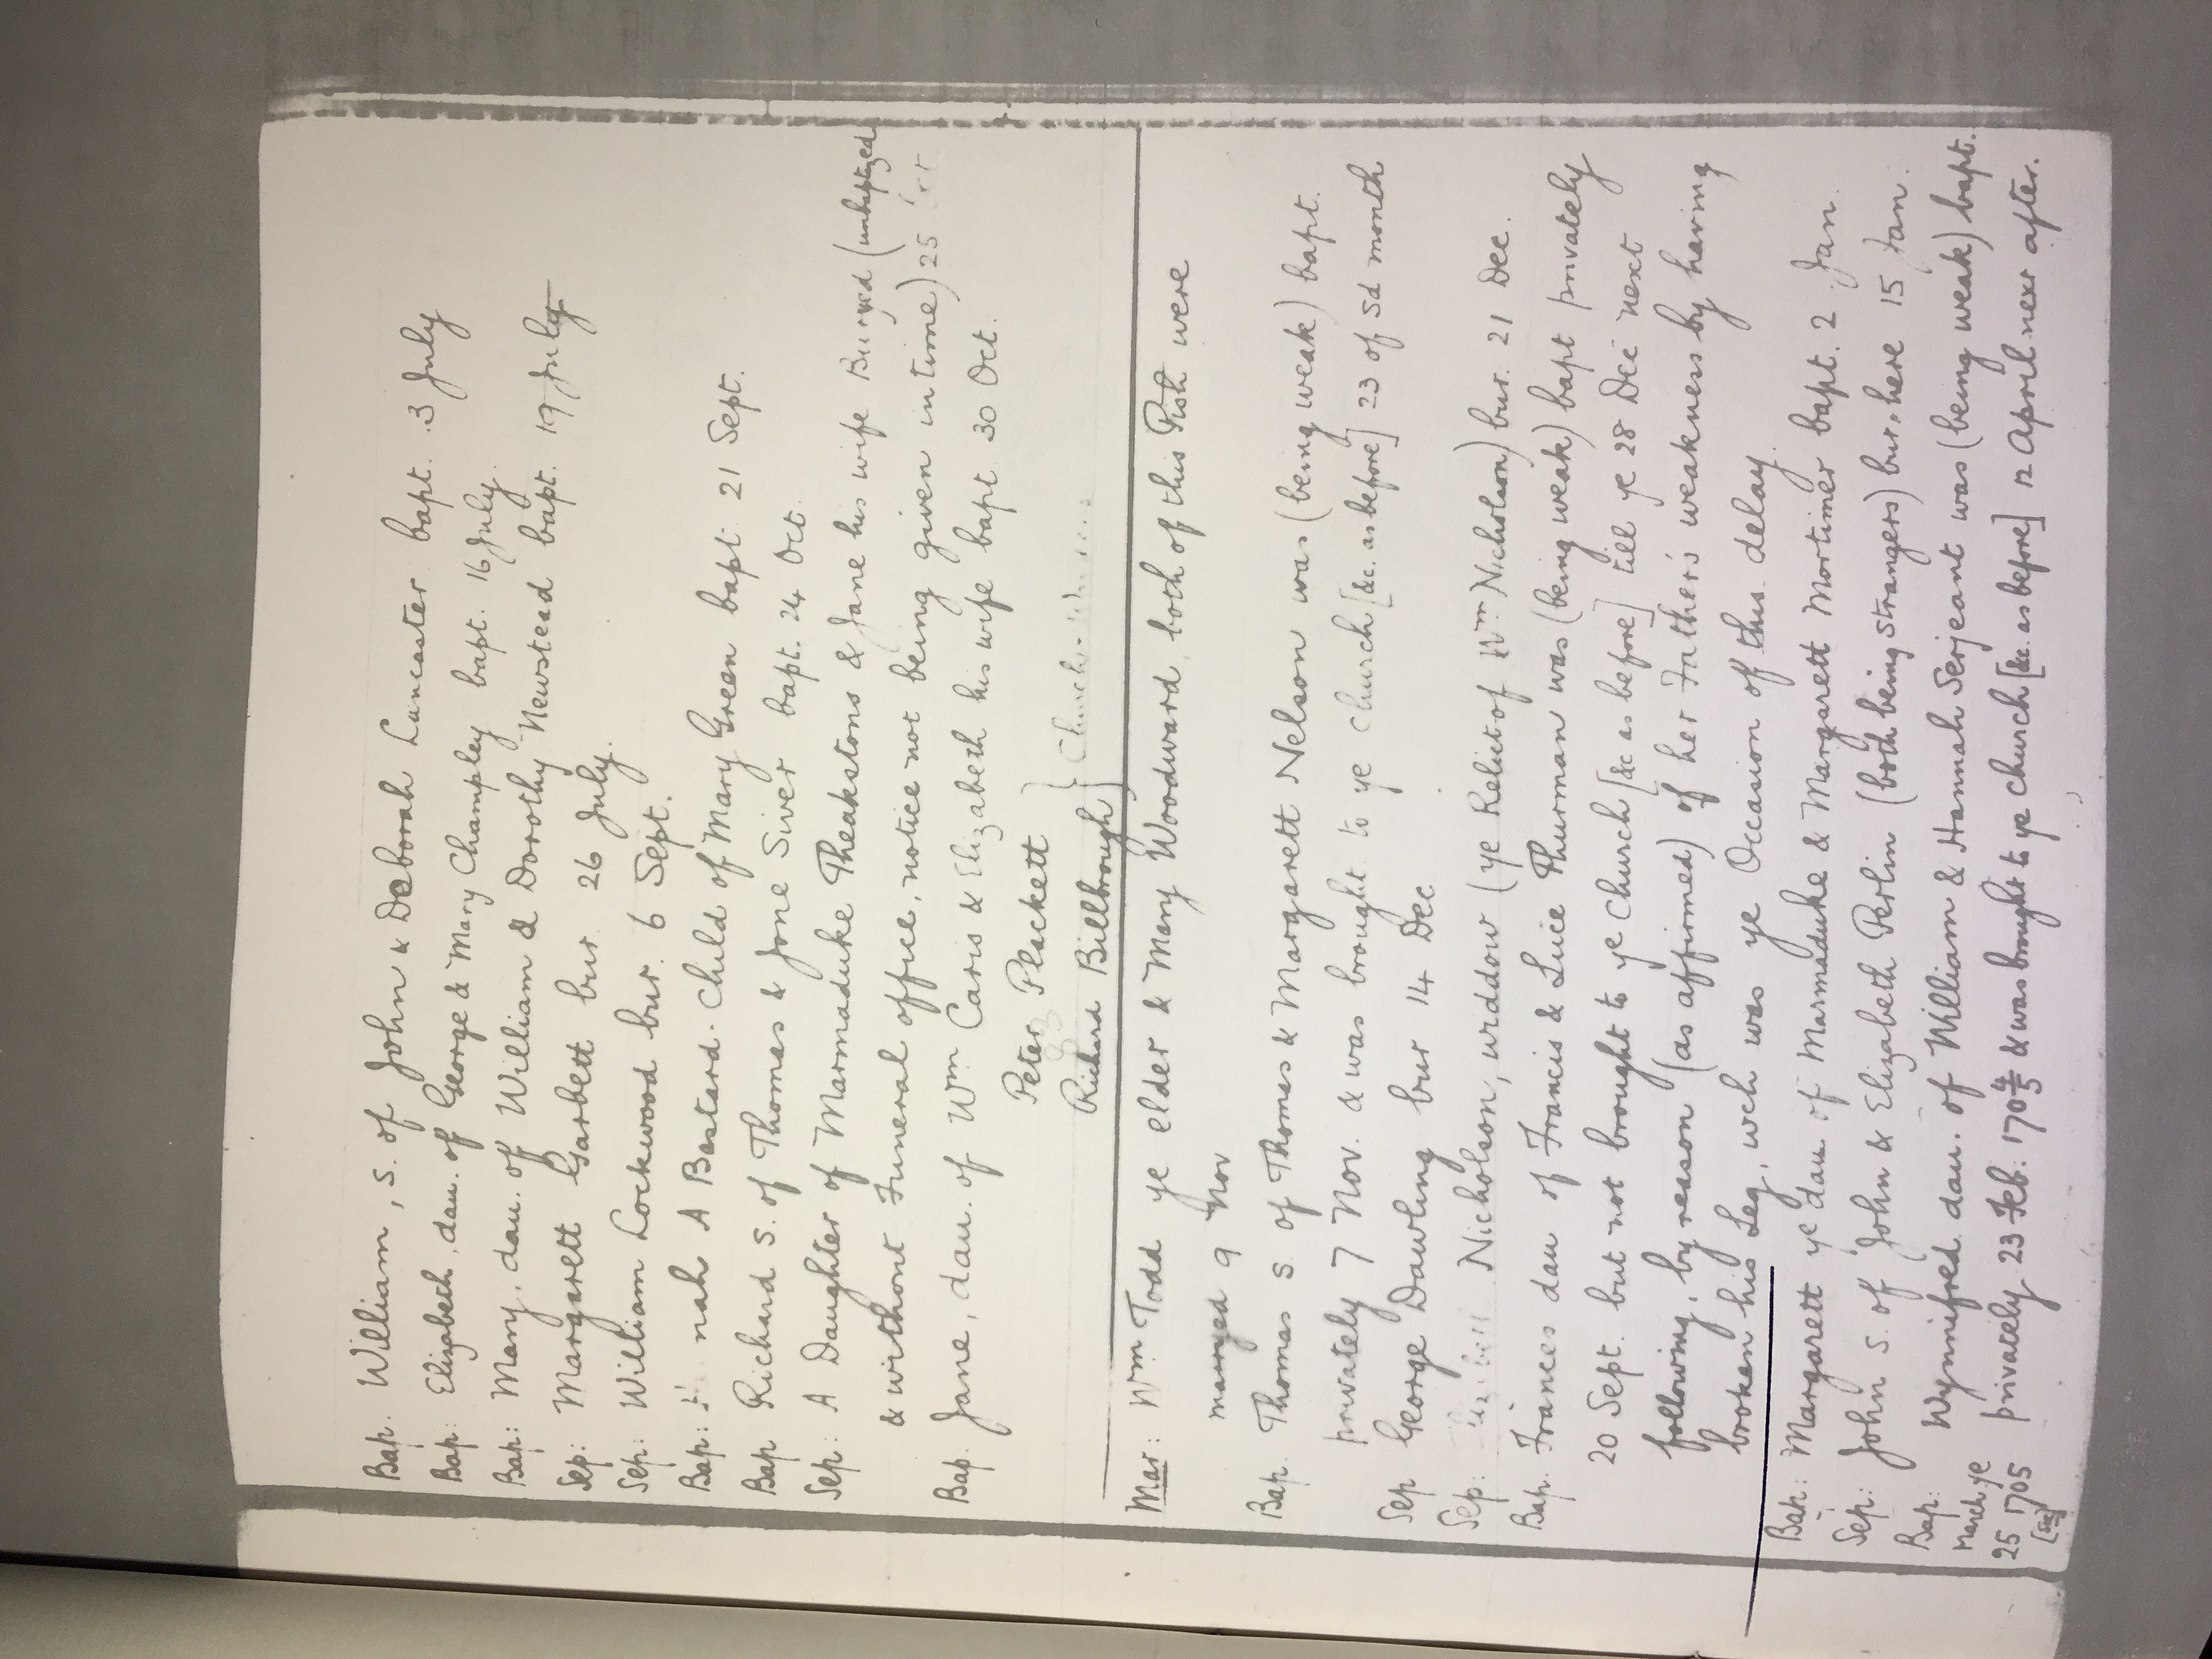 Bap. William, s. of John & Deborah Lancaster bapt. 3 July
Bap: Elizabeth, dau. of George & Mary Champley bapt. 16 July
Bap: Mary, dau. of William & Dorothy Newstead bapt. 19 July
Sep: Margarett Garbett bur 26 July.
Sep: William Lockwood bur. 6 Sept.
Bap: nah A Bastard-Child of Mary Green bapt. 21 Sept.
Bap Richard s. of Thomas & Jone Siver bapt. 24 Oct.
Sep: A Daughter of Marmaduke Theakstons & Jane his wife Buryed (unbaptized
& without Funeral office, notice not being given in time) 25
Bap. Jane, dau. of Wm Caris & Elizabeth his wife bapt. 30 Oct.
Peter Plackett
Richard Billbrough } Church-
Mar: Wm Todd ye elder & Mary Woodward, both of this Pish were
maryed 9 Nov
Bap. Thomas s of Thomas & Margarett Nelson was (being weak) bapt.
privately 7 Nov. & was brought to ye Church [&c. as before] 23 of sd month
Sep George Dawling bur 14 Dec
Sep: Nicholson, widdow (ye Relict of Wm Nicholson) bur. 21 Dec.
Bap. Frances dau of Francis & Luce Thurman was (being weak) bapt privately
20 Sept. but not brought to ye Church [&c as before] till ye 28 Dec next
following, by reason (as affirmed) of her Father's weakness by having
broken his Leg, wch was ye Occasion of this delay.
Bap: Margarett ye dau. of Marmaduke & Margarett Mortimer bapt. 2 Jan.
Sep: John s. of John & Elizabeth Perlin (both being strangers) bur. here 15 Jan.
Bap: Wynnifred dau. of William & Hannah Serjeant was (being weak) bapt.
March ye
25 1705 privately 23 Feb. 170 4/5 & was brought to ye church [&c. as before] 12 April next after.
[sic]